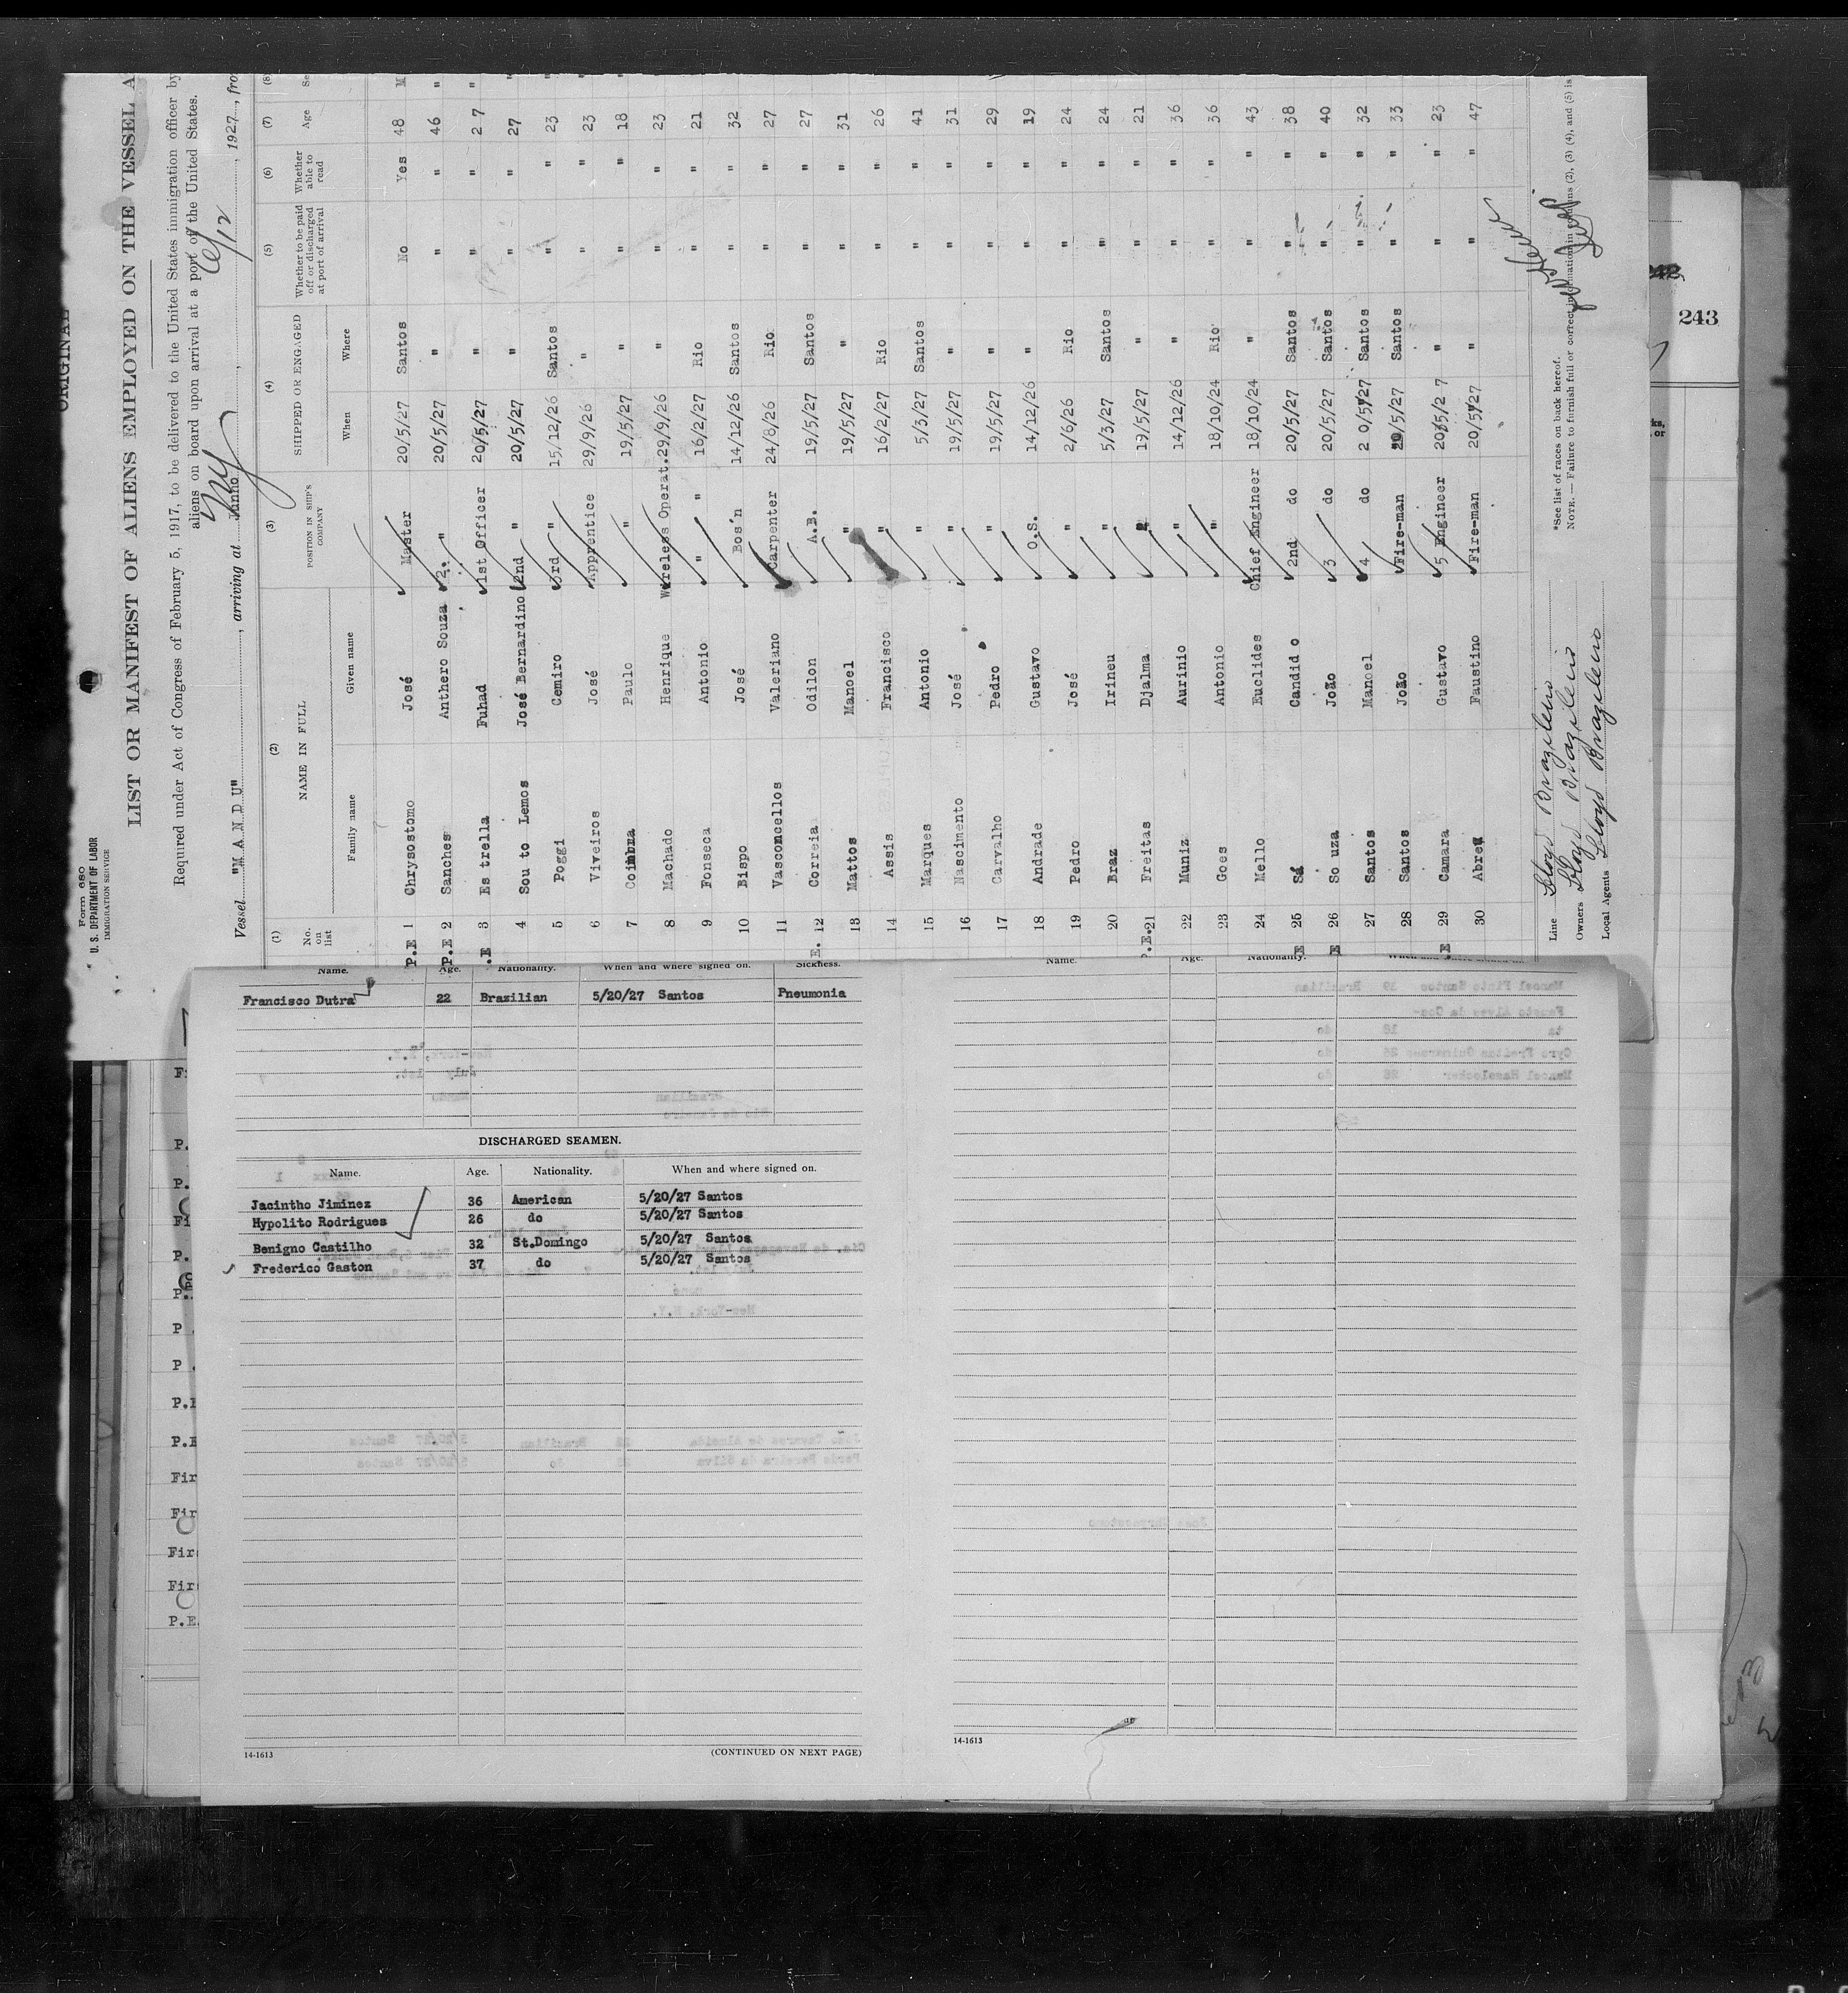 ORIGINAL
Form 680
U. S. DEPARTMENT OF LABOR
IMMIGRATION SERVICE
LIST OR MANIFEST OF ALIENS EMPLOYED ON THE VESSEL A
Required under Act of Congress of February 5, 1917, to be delivered to the United States immigration officer by
aliens on board upon arrival at a port of the United States.
Vessel "M A N D U", arriving at NY Junho 6/12, 1927, fro
(1) (2) (3) (4) (5) (6) (7) (8)
No. on list NAME IN FULL POSITION IN SHIP'S COMPANY SHIPPED OR ENGAGED Whether to be paid off or discharged at port of arrival Whether able to read Age Se
Family name Given name When Where
P.E 1 Chrysostomo José Master 20/5/27 Santos No Yes 48 M
P.E 2 Sanches Anthero Souza 2. " 20/5/27 " " " 46 "
.E 3 Es trella Fuhad 1st Officer 20/5/27 " " " 2 7 "
4 Sou to Lemos José Bernardino 2nd " 20/5/27 " " " 27 "
5 Poggi Cemiro 3rd " 15/12/26 Santos " " 23 "
6 Viveiros José Apprentice 29/9/26 " " " 23 "
7 Coimbra Paulo " 19/5/27 " " " 18 "
8 Machado Henrique Wireless Operat. 29/9/26 " " " 23
9 Fonseca Antonio " " 16/2/27 Rio " " 21
10 Bispo José Bos'n 14/12/26 Santos " " 32
11 Vasconcellos Valeriano Carpenter 24/8/26 Rio " " 27
E. 12 Correia Odilon A.B. 19/5/27 Santos " " 27
13 Mattos Manoel " 19/5/27 " " " 31
14 Assis Francisco " 16/2/27 Rio " " 26
15 Marques Antonio " 5/3/27 Santos " " 41
16 Nascimento José " 19/5/27 " " " 31
17 Carvalho Pedro " 19/5/27 " " " 29
18 Andrade Gustavo O.S. 14/12/26 " " " 19
19 Pedro José " 2/6/26 Rio " " 24
20 Braz Irineu " 5/3/27 Santos " " 24
P.E. 21 Freitas Djalma " 19/5/27 " " " 21
22 Muniz Aurinio " 14/12/26 " " " 36
23 Goes Antonio " 18/10/24 Rio " " 36
24 Mello Euclides Chief Engineer 18/10/24 " " " 43
E 25 Sá Candid o 2nd do 20/5/27 Santos " " 38
E 26 So uza João 3 do 20/5/27 Santos " " 40
27 Santos Manoel 4 do 2 0/5/27 Santos " " 32
28 Santos João Fire-man 20/5/27 Santos " " 33
.E 29 Camara Gustavo 5 Engineer 20/5/2 7 " " " 23
30 Abreu Faustino Fire-man 20/5/27 " " " 47
Line Lloyd Brazileiro
Owners Lloyd Brazileiro
Local Agents Lloyd Brazileiro
*See list of races on back hereof.
NOTE.—Failure to furnish full or correct information in columns (2), (3) (4), and (5) is
243
Name. Age. Nationality. When and where signed on. Sickness.
Francisco Dutra 22 Brazilian 5/20/27 Santos Pneumonia
DISCHARGED SEAMEN.
Name. Age. Nationality. When and where signed on.
Jacintho Jiminez 36 American 5/20/27 Santos
Hypolito Rodrigues 26 do 5/20/27 Santos
Benigno Castilho 32 St.Domingo 5/20/27 Santos
Frederico Gaston 37 do 5/20/27 Santos
14-1613
(CONTINUED ON NEXT PAGE)
Name. Age. Nationality.
14-1613
P.
P.
Fi
P.
P
P .
P.E
Fir
Fir
Fir
Fir
P.E